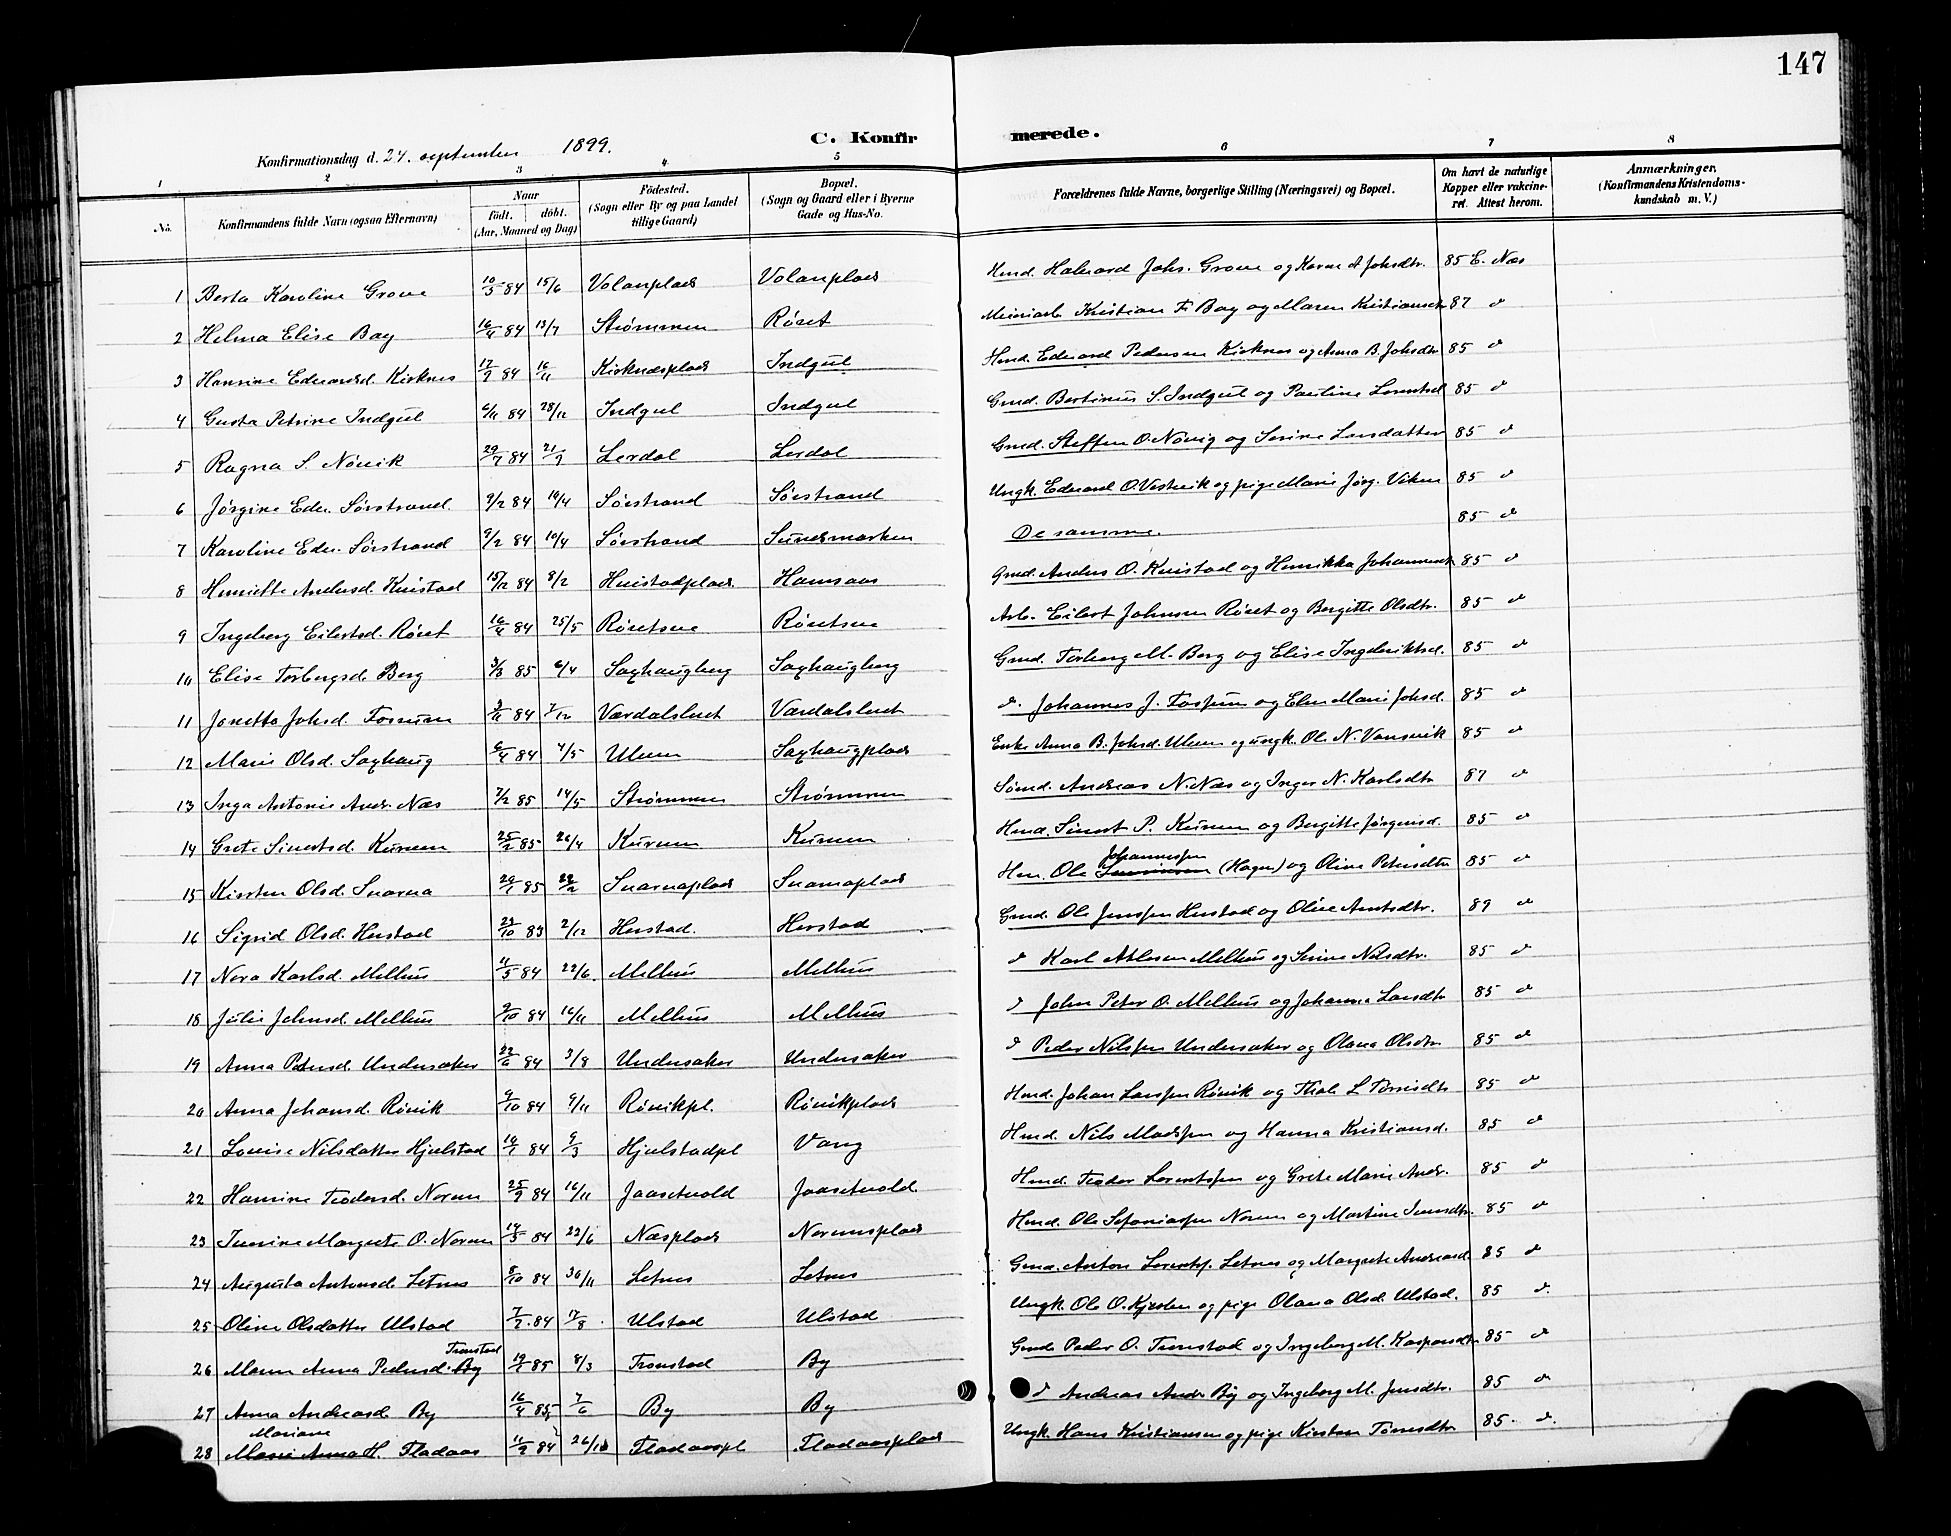 147
C. Konfirmerede.
Konfirmationsdag d. 24. september 1899.
1 2 3 4 5 6 7 8
No. Konfirmandens fulde Navn (ogsaa Efternavn) Naar født. døbt. (Aar, Maaned og Dag) Fødested. (Sogn eller By og paa Landet tillige Gaard) Bopæl. (Sogn og Gaard eller i Byerne Gade og Hus-No. Forældrenes fulde Navne, borgerlige Stilling (Næringsvei) og Bopæl. Om havt de naturlige Kopper eller vakcineret. Attest herom. Anmærkninger. (Konfirmandens Kristendomskundskab m. V.)
1 Berta Karoline Grove 10/5 84 15/6 Volanplads Volanplads Hmd. Halvard Johs. Grove og Karen A Johsdtr. 85 E. Næs
2 Helma Elise Bay 16/4 84 13/7 Strømmen Røret Kristian F. Bay og Maren 87 d
3 Hansine Edvardsd. Kirknes 17/9 84 16/11 Kirknesplads Indgul Hmd. Edvard Pedersen Kirknes og Anna B. Johsdtr 85 d
4 Gusta Petrine Indgul 6/11 84 28/12 Indgul Indgul Gmd. Bertinus S. Indgul og Pauline Lorentsd 85 d
5 Ragna S. Nøvik 29/7 84 21/9 Lerdal Lerdal Gmd. Steffen O. Nøvig og Serine Larsdatter 85 d
6 Jørgine Edv. Sørstrand. 9/2 84 10/4 Sørstrand Sørstrand Ungk. Edvard O. Vestvik og pige Marie Jørg. Viken 85 d
7 Karoline Edv. Sørstrand 9/2 84 10/4 Sørstrand Sundsmarken De samme. 85 d
8 Henriette Andersd. Kvistad 15/12 84 8/2 Hamsaas Gmd. Anders O. Kvistad og Henrikka 85 d
9 Ingeborg Eilertsd. Røret 16/4 84 25/5 Røretsve Røretsve Arb. Eilert Johnsen Røret og Bergitte Olsdtr. 85 d
10 Elise Torbergsd. Berg 3/3 85 6/4 Saxhaugberg Saxhaugberg Gmd. Torberg M. Berg og Elise Ingebriktsd. 85 d
11 Janetta Johsd. Fossum 84 7/12 Værdalslvet Værdalslvet d. Johannes J. Fossum og Elen Marie Johsd. 85 d
12 Marie Olsd. Saxhaug 6/4 84 4/5 Ulven Saxhaugplads Enke Anna B. Johsd. Ulven og ungk. Ole N. Vansvik 85 d
13 Inga Antonie Andr. Næs 7/2 85 14/5 Strømmen Strømmen Sømd. Andreas N. Næs og Inger N. Karlsdtr 87 d
14 Grete Sivertsd. Kurven 25/2 85 26/4 Kurven Kurven Hmd. Sivert P. Kurven og Bergitte Jørgensd. 85 d
15 Kirsten Olsd. Svarva 85 22/2 Svarvaplads Svarvaplads Hm. Ole Johannessen (Hagen) og Oline Petersdtr 85 d
16 Sigrid Olsd. Herstad 29/10 83 2/12 Herstad. Herstad Gmd. Ole Jenssen Herstad og Olise Arntsdtr. 89 d
17 Nora Karlsd. Melhus 11/5 84 22/6 Melhus Melhus d Karl Melhus og Serine Nilsdtr. 85 d
18 Julie Johnsd. Melhus 9/10 84 16/11 Melhus Melhus d John Peter O. Melhus og Johanna Larsdtr 85 d
19 Anna Petersd. Undersaker 22/6 84 3/8 Undersaker Undersaker d Peder Nilssen Undersaker og Olana Olsdtr 85 d
20 Anna Johansd. Røvik 9/10 84 9/11 Røvikpl. Røvikplads Hmd. Johan Larssen Røvik og L Tørrisdtr 85 d
21 Lovise Nilsdatter Hjelstad 84 9/3 Hjelstadpl Vang Hmd. Nils Madssen og Hanna Kristiansd. 85 d
22 Hansine Teodorsd. Norum 25/9 84 16/11 Jaasetvold Jaasetvold Hmd. Teodor Lorentssen og Grete Marie Andr. 85 d
23 Margrete O. Norum 14/5 84 22/6 Næsplads Norumsplads Hmd. Ole Norum og Martine 85 d
24 Augusta Antonsd. Letnes 8/10 84 30/11 Letnes Letnes Gmd. Anton Lorents. Letnes og Margrete Andreasd 85 d
25 Oline Olsdatter Ulstad 7/2. 84 17/8 Ulstad Ulstad Ungk. Ole O. Kjesbu og pige Olana Olsd. Ulstad. 85 d.
26 Maren Anna Pedersd. By Tronstad 85 8/3 Tronstad By Gmd. Peder O. Tronstad og Ingeborg M. Kaspersdtr 85 d
27 Anna Andreasd By 16/4 85 7/6 By By d Andreas Andr. By og Ingeborg M. Jensdtr. 85 d
28 Mariane Marie Anna H. Fladaas 11/9 84 26/10 Fladaaspl Fladaasplads Ungk. Hans Kristiansen og pige Kirsten Tørresdtr 85. d.